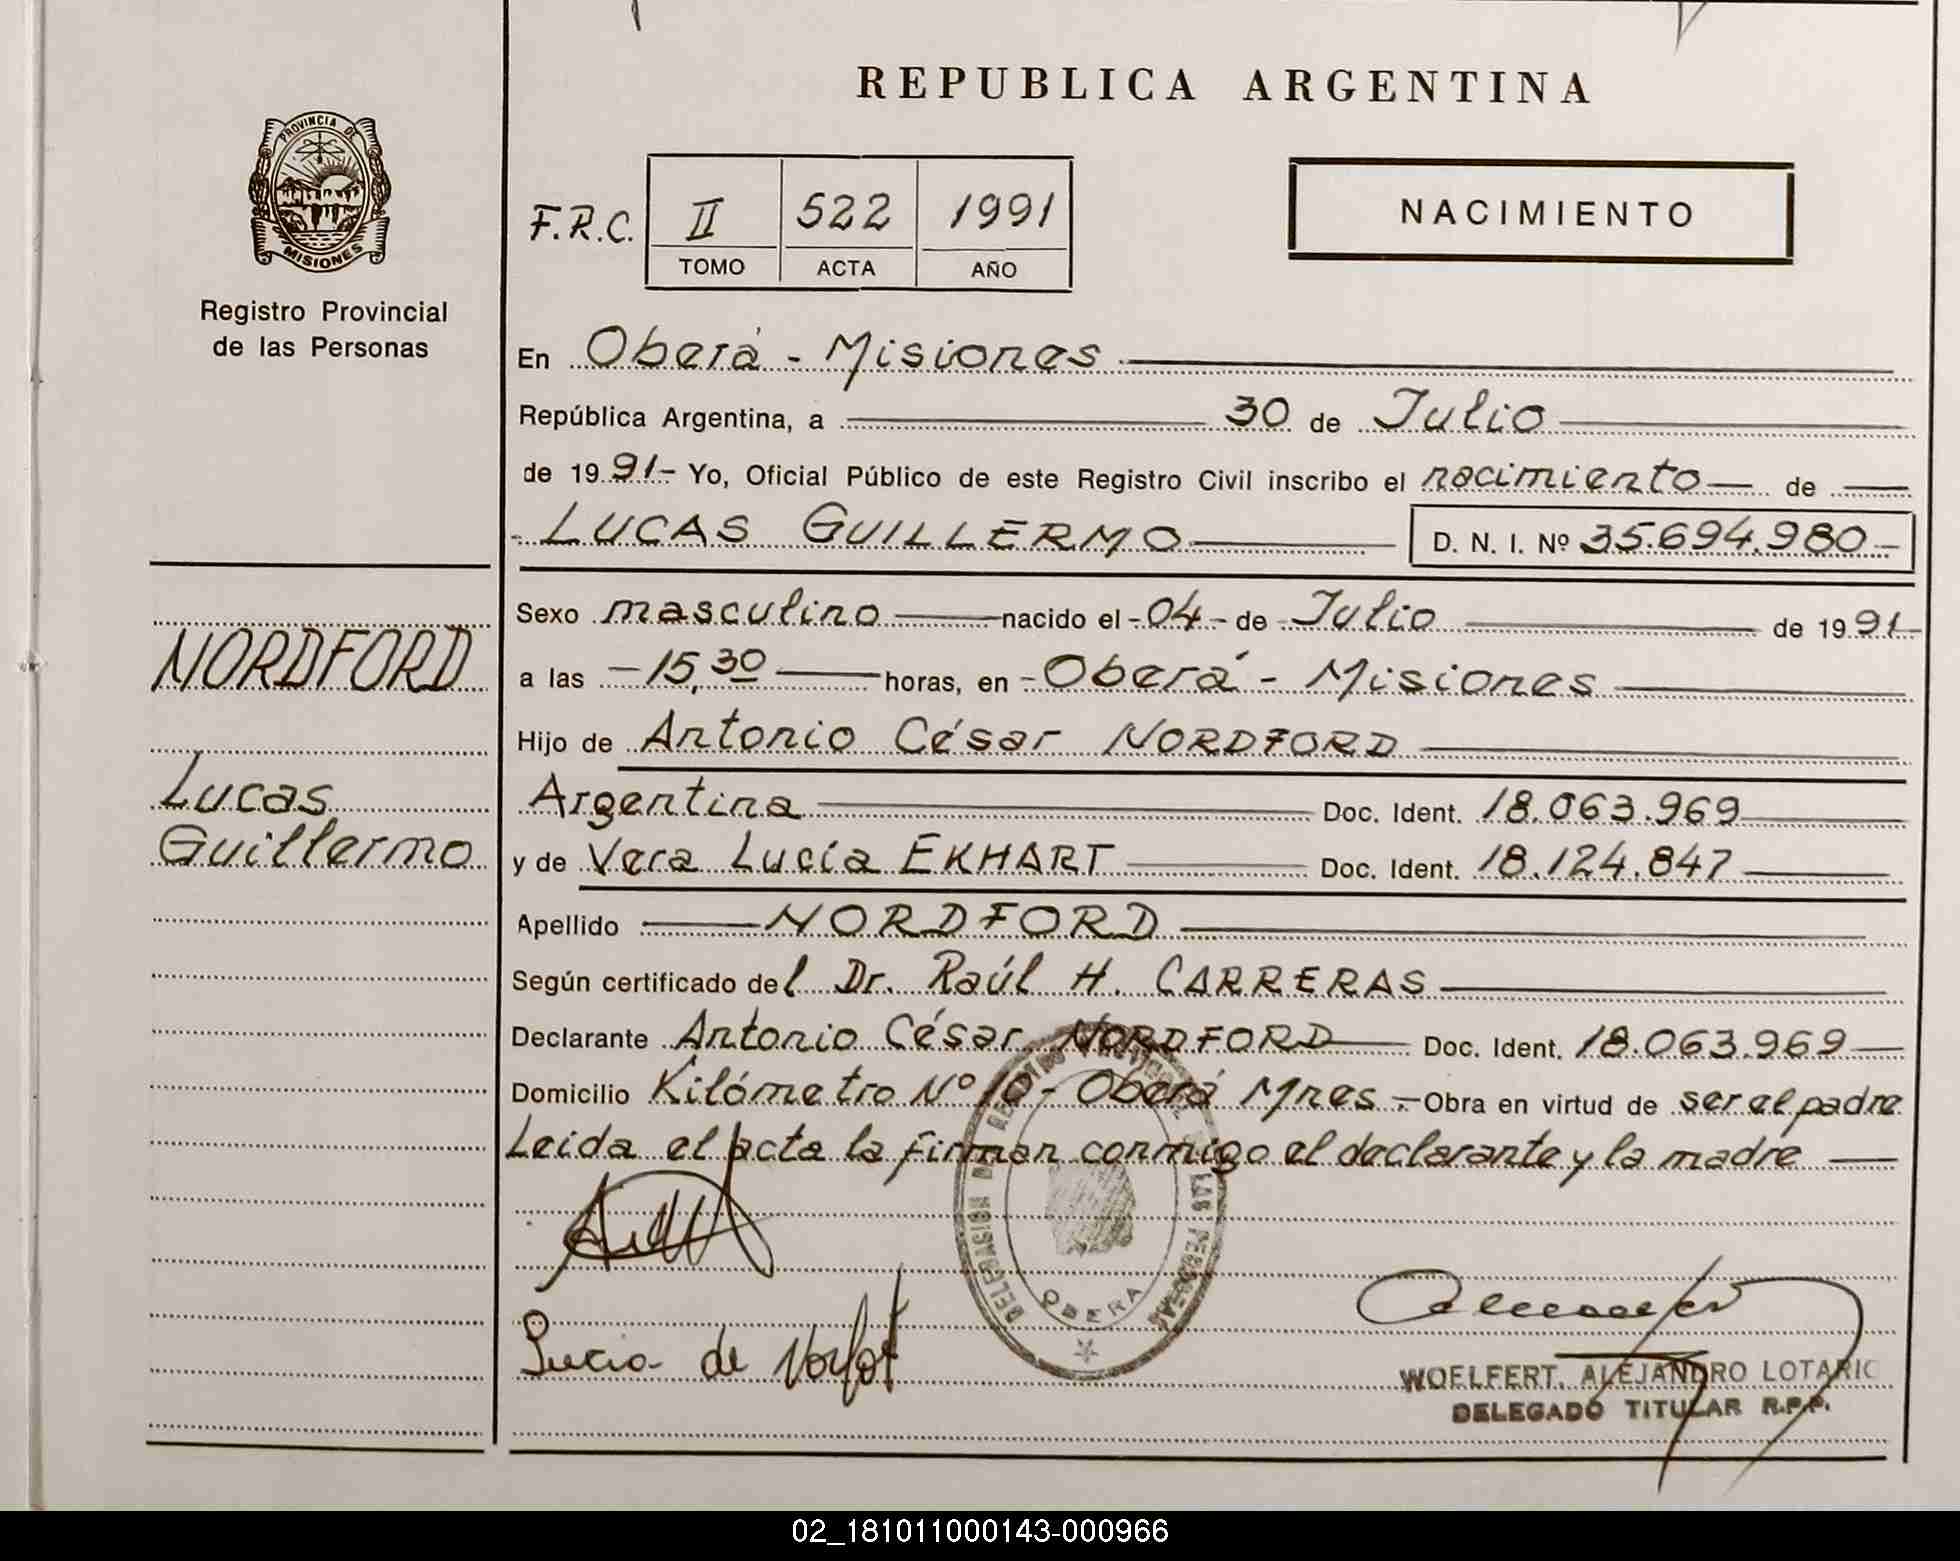 REPUBLICA ARGENTINA
PROVINCIA DE
MISIONES
Registro Provincial
de las Personas
F.R.C. II 522 1991
TOMO ACTA AÑO
NACIMIENTO
En Oberá - Misiones
República Argentina, a 30 de Julio
de 1991- Yo, Oficial Público de este Registro Civil inscribo el nacimiento de
LUCAS GUILLERMO D. N. I. Nº 35.694.980-
NORDFORD
Lucas
Guillermo
Sexo masculino nacido el -04- de Julio de 1991-
a las -15,30 horas, en -Oberá - Misiones
Hijo de Antonio César NORDFORD
Argentina Doc. Ident. 18.063.969
y de Vera Lucía EKHART Doc. Ident. 18.124.847
Apellido NORDFORD
Según certificado del Dr. Raúl H. CARRERAS
Declarante Antonio César NORDFORD Doc. Ident. 18.063.969
Domicilio Kilómetro Nº 10 - Oberá Mnes.- Obra en virtud de ser el padre
Leida el acta la firman conmigo el declarante y la madre
DELEGACION DE REGISTRO PROVINCIAL DE LAS PERSONAS
OBERA
Lucia de Norfot
WOELFERT, ALEJANDRO LOTARIO
DELEGADO TITULAR R.P.P.
02_181011000143-000966